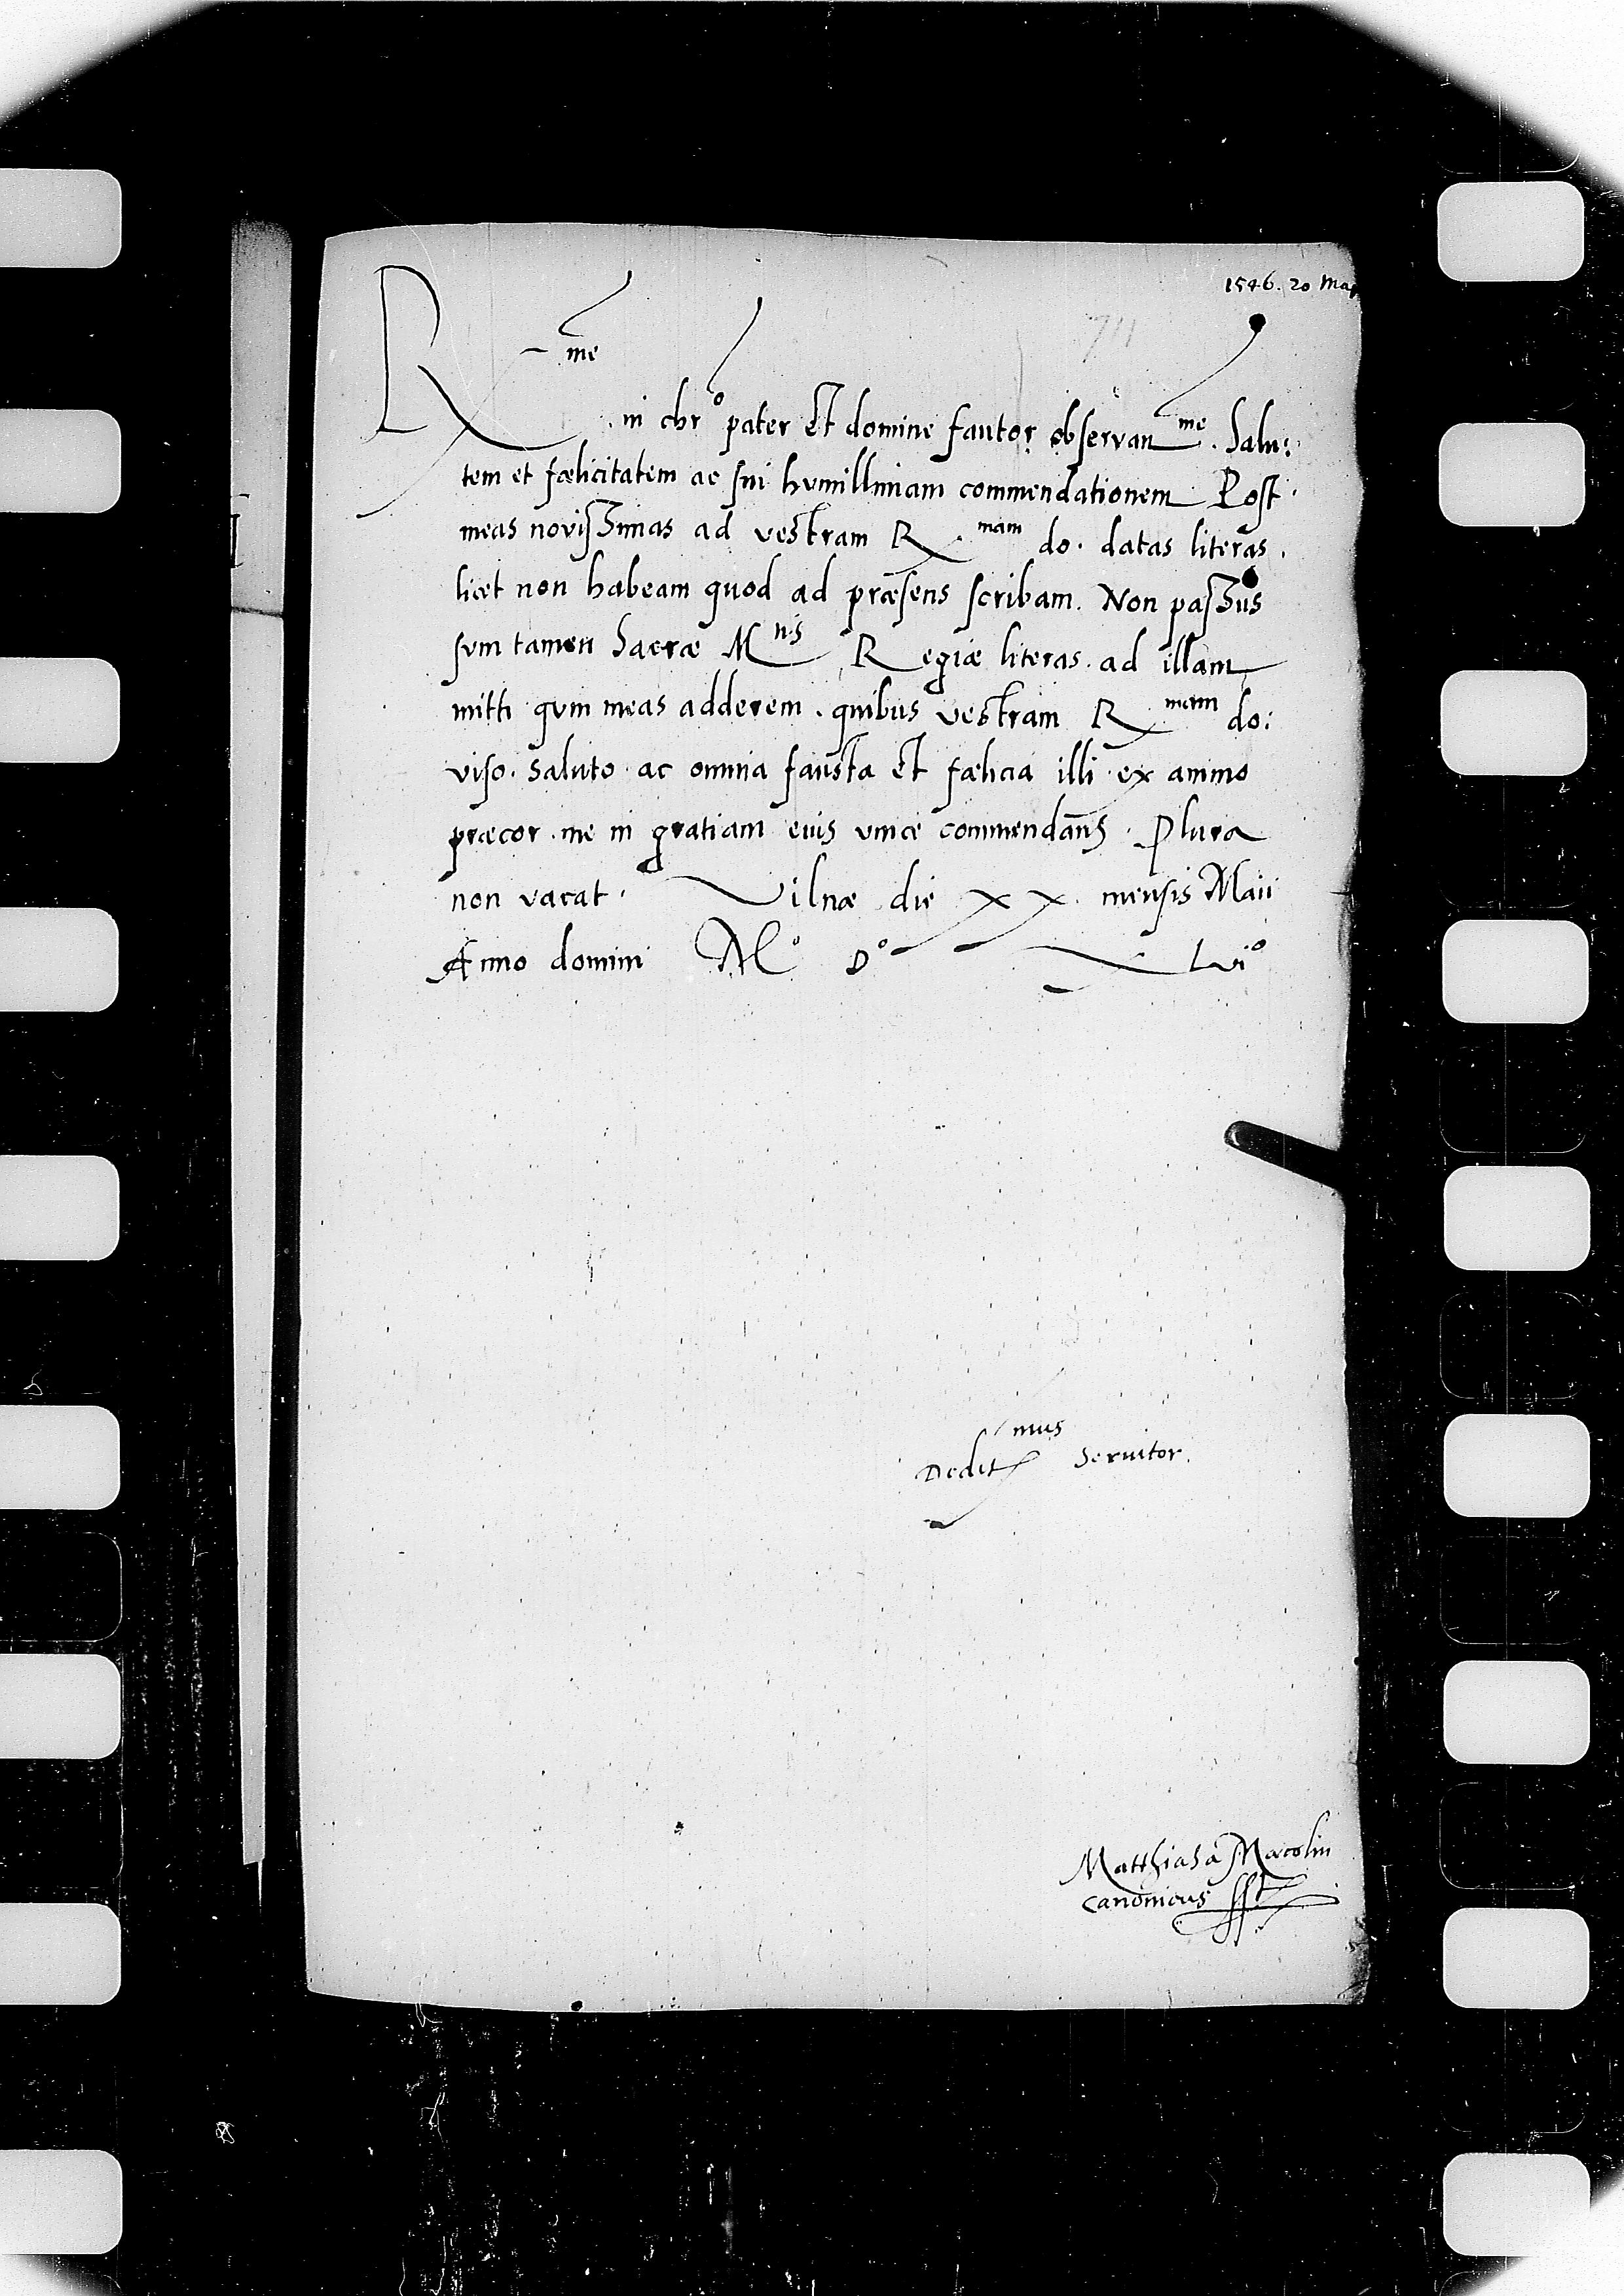 1546. 20 Maji
711
R me
in chr° pater Et domine fautor observan me. Salu:
tem et fælicitatem ac sui humillimam commendationem Post
meas novissimas ad vestram R mam do. datas literas.
licet non habeam quod ad præsens scribam. Non passus
sum tamen Sacræ M n:s Regiæ literas. ad illam
mitti qum meas adderem. quibus vestram R mam do:
viso. saluto ac omnia fausta Et fælicia illi ex animo
præcor. me in gratiam eius unice commendans. Plura
non vacat. Vilnæ die XX mensis Maii
Anno domini M° D° Lvi°
Dedit mus Servitor.
Matthias a
canonicus